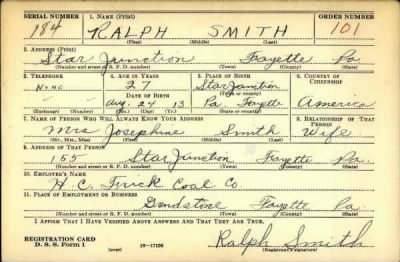 SERIAL NUMBER 1. NAME (Print) ORDER NUMBER
184 RALPH SMITH 101
(First) (Middle) (Last)
2. ADDRESS (Print)
Star Junction Fayette Pa
(Number and street or R. F. D. number) (Town) (County) (State)
3. TELEPHONE 4. AGE IN YEARS 5. PLACE OF BIRTH 6. COUNTRY OF CITIZENSHIP
None 27 Star Junction
DATE OF BIRTH (Town or county)
Aug. 24 13 Pa Fayette America
(Exchange) (Number) (Mo.) (Day) (Yr.) (State or country)
7. NAME OF PERSON WHO WILL ALWAYS KNOW YOUR ADDRESS 8. RELATIONSHIP OF THAT PERSON
Mrs Josephine Smith Wife
(Mr., Mrs., Miss) (First) (Middle) (Last)
9. ADDRESS OF THAT PERSON
155 Star Junction Fayette Pa.
(Number and street or R. F. D. number) (Town) (County) (State)
10. EMPLOYER'S NAME
H. C. Frick Coal Co
11. PLACE OF EMPLOYMENT OR BUSINESS
Fayette Pa
(Number and street or R. F. D. number) (Town) (County) (State)
I AFFIRM THAT I HAVE VERIFIED ABOVE ANSWERS AND THAT THEY ARE TRUE.
REGISTRATION CARD
D. S. S. Form 1 (over) 16-17105 Ralph Smith
(Registrant's signature)